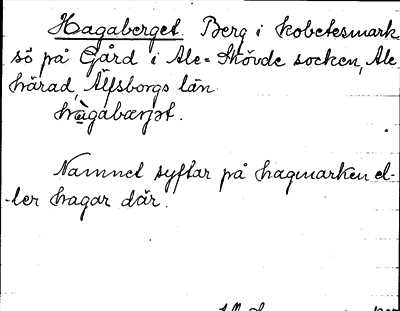 Hagaberget. Berg i kobetesmark
sö på Gård i Ale-Skövde socken, Ale
härad, Älfsborgs län.
hàgabærjət.
Namnet syftar på hagmarken el-
-ler hagar där.